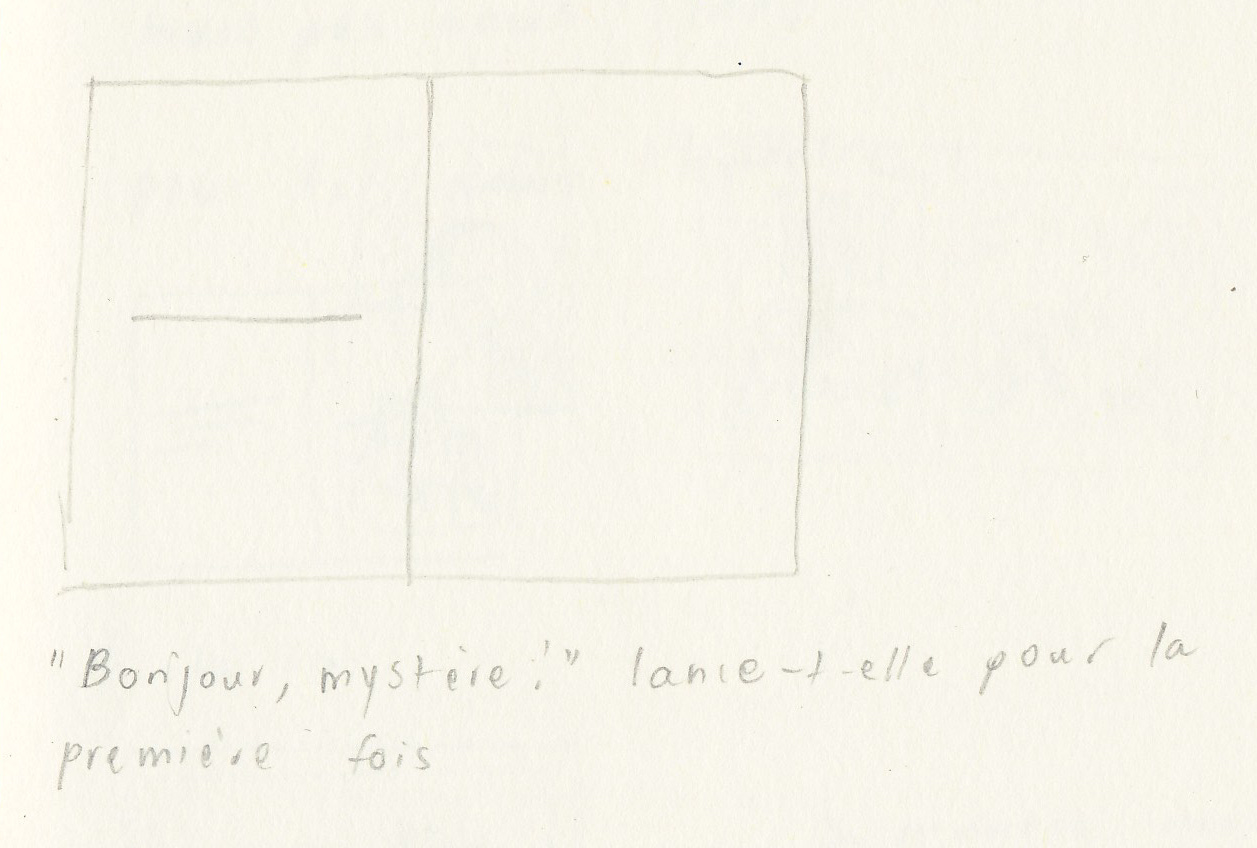 "Bonjour, mystère!" lance-t-elle pour la
première fois